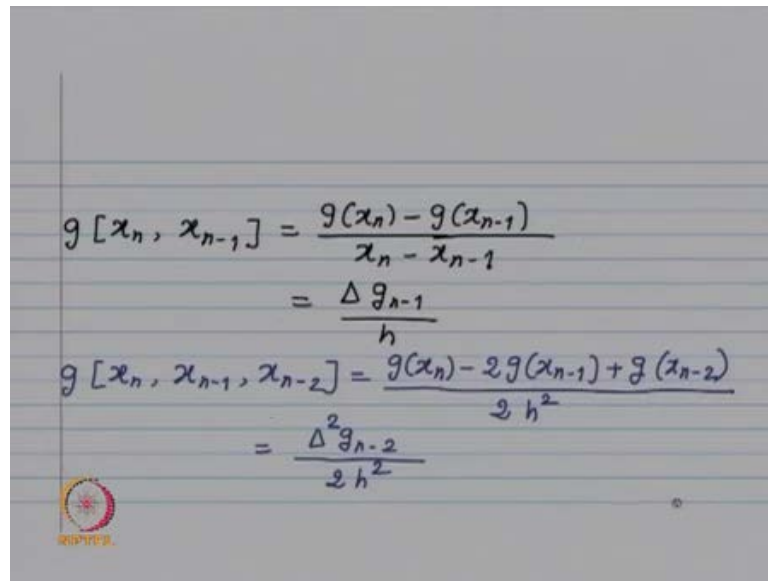 g [xₙ, xₙ₋₁] = (g(xₙ) − g(xₙ₋₁)) / (xₙ − xₙ₋₁)
= Δ gₙ₋₁ / h
g [xₙ, xₙ₋₁, xₙ₋₂] = (g(xₙ) − 2g(xₙ₋₁) + g(xₙ₋₂)) / (2 h²)
= Δ² gₙ₋₂ / (2 h²)